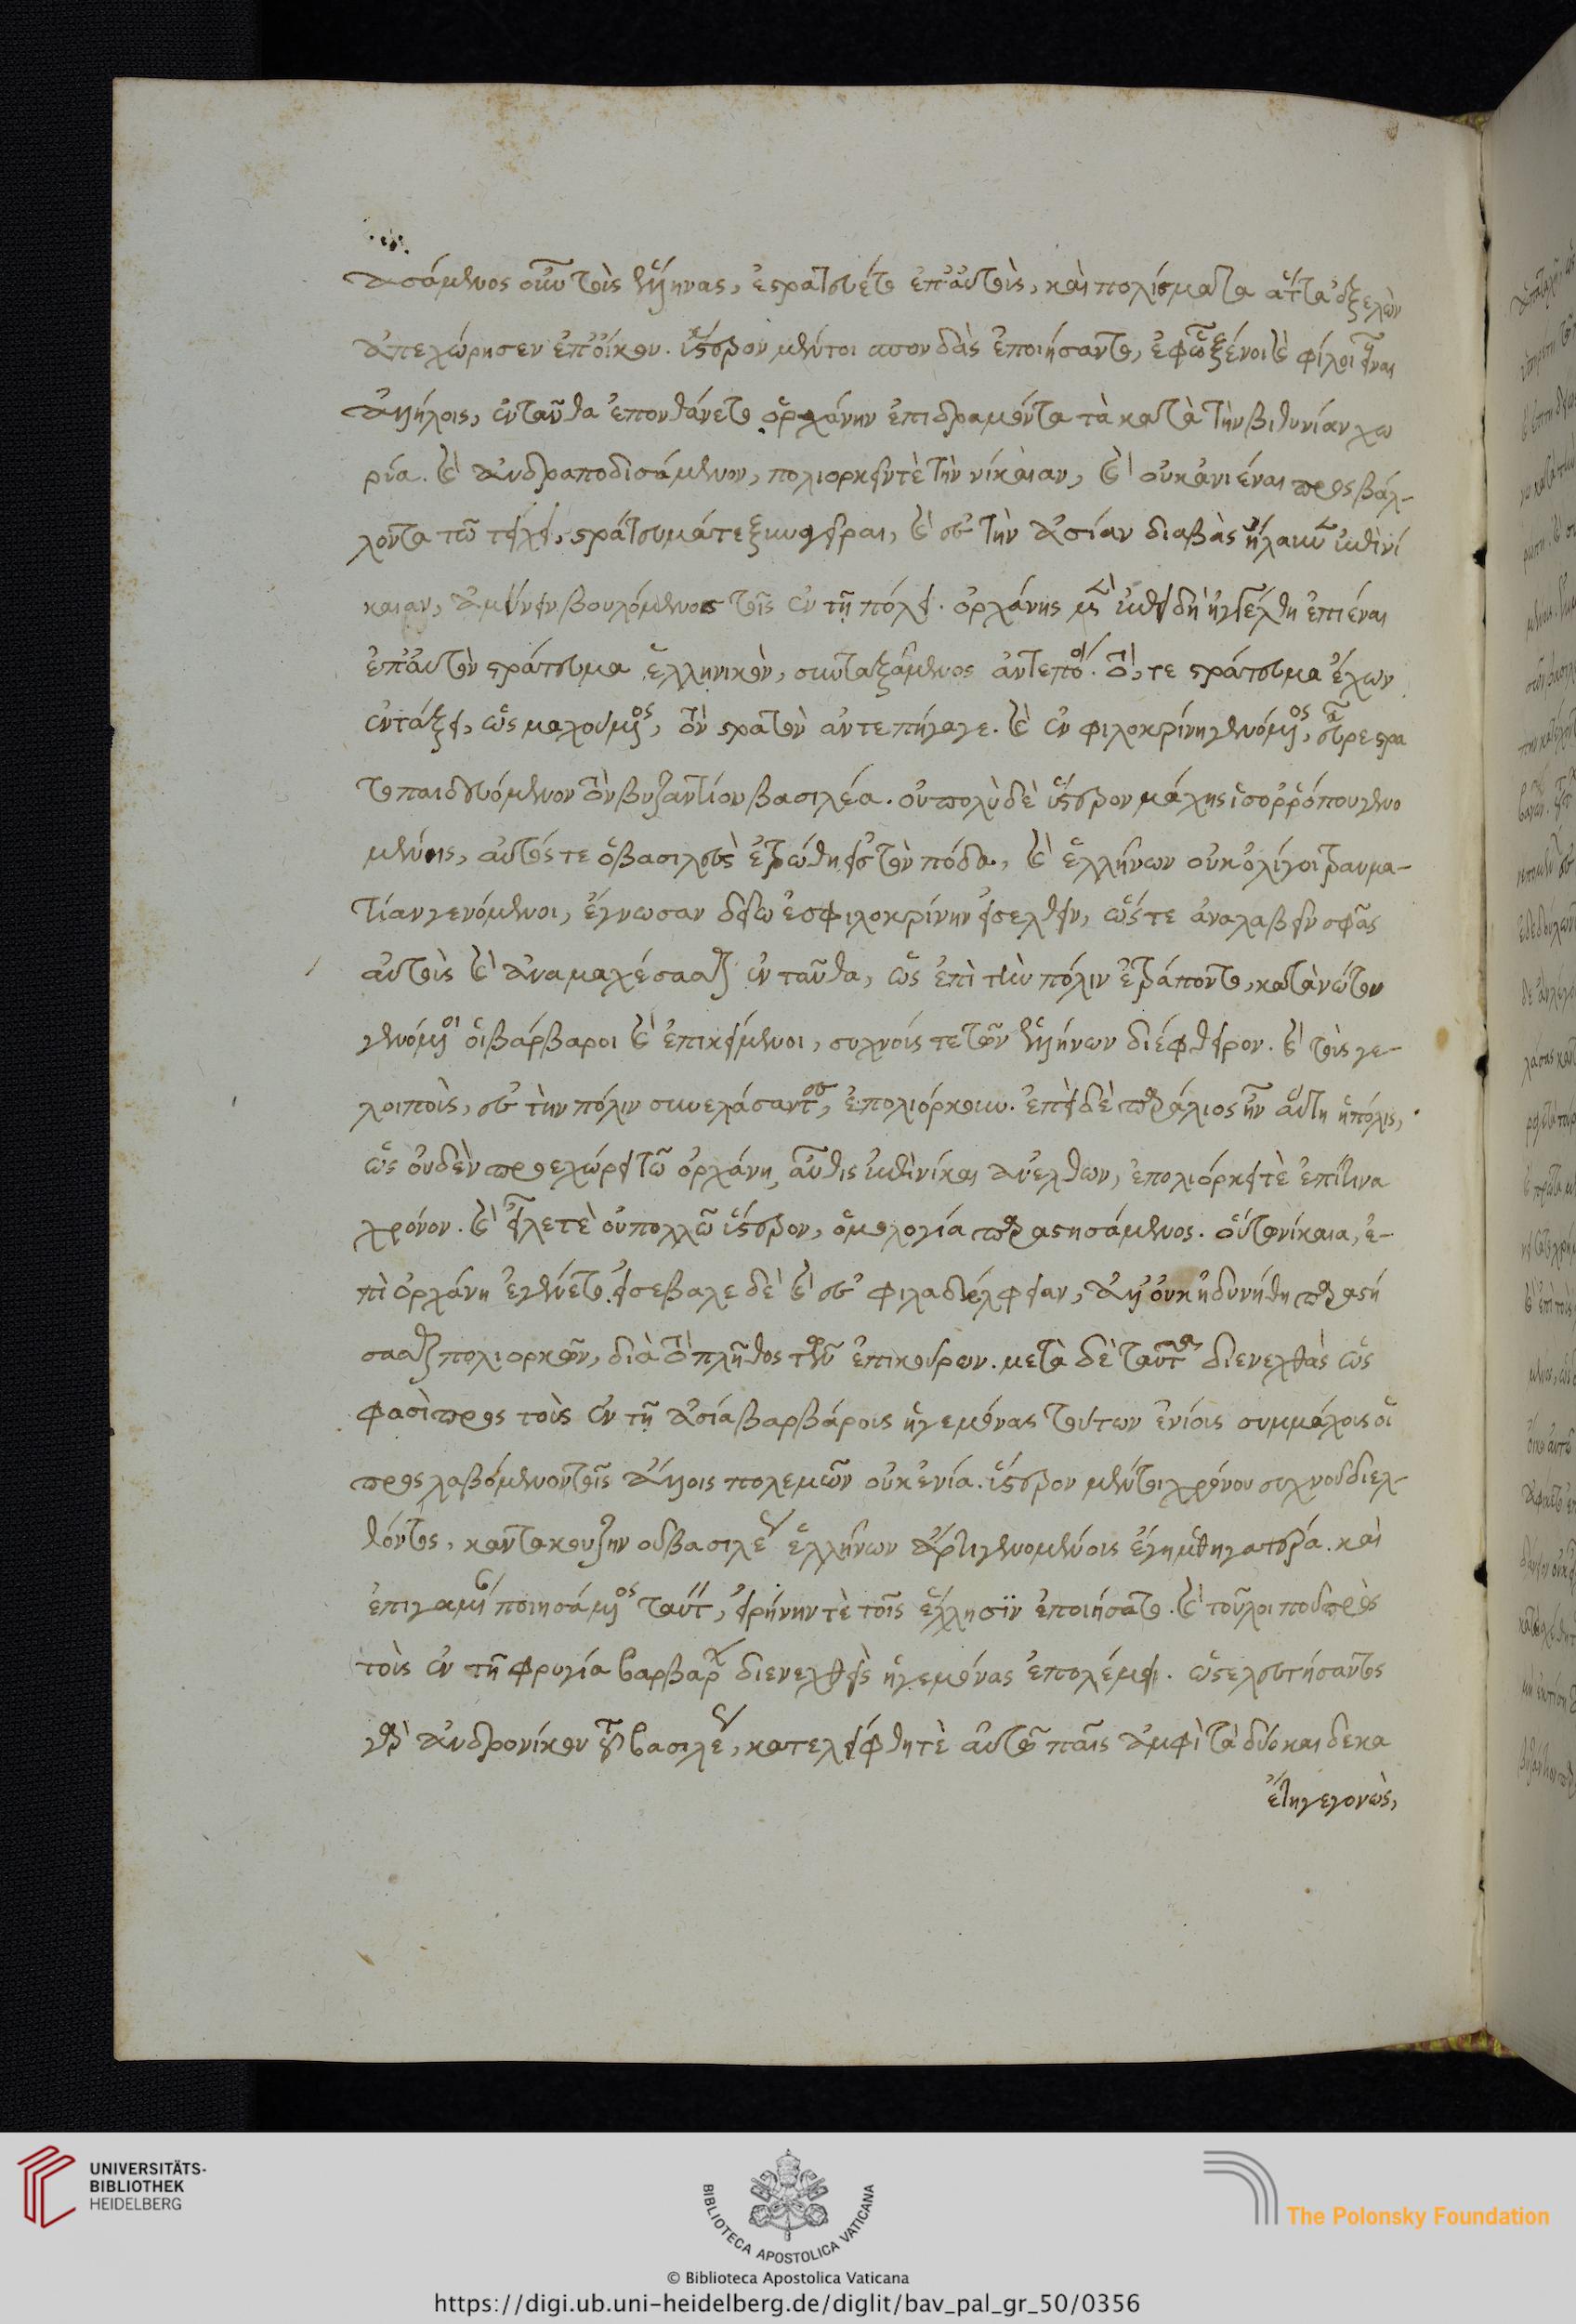 ασάμενος οὖν τοὺς ἕλληνας, ἐστρατεύετο ἐπ' αὐτοὺς, καὶ πολίσματα ἄττα ἐξελὼν
ἀπεχώρησεν ἐπ' οἴκου. ὕστερον μέντοι σπονδὰς ἐποιήσαντο, ἐφ' ᾧ ξένοι καὶ φίλοι εἶναι
ἀλλήλοις, ἐνταῦθα ἐπυνθάνετο ὀρχάνην ἐπιδραμόντα τὰ κατὰ τὴν βιθυνίαν χω
ρία. καὶ ἀνδραποδισάμενον, πολιορκεῖν τὲ τὴν νίκαιαν, καὶ οὐκ ἀνιέναι προσβάλ-
λοντα τῷ τείχει, στράτευμά τε ξυναγείραι, καὶ ἐς τὴν ἀσίαν διαβὰς ἤλαυνεν ἐπὶ νί
καιαν, ἀμύνειν βουλόμενος τοῖς ἐν τῇ πόλει. ὀρχάνης μὲν ἐπειδὴ ἠγγέλθη ἐπιέναι
ἐπ' αὐτὸν στράτευμα ἑλληνικὸν, συνταξάμενος ἀντεπῄει. τό, τε στράτευμα ἔχων
ἐν τάξει, ὡς μαχούμενος, τὸν στρατὸν ἀντεπήγαγε. καὶ ἐν φιλοκρίνῃ γενόμενος, εὗρε στρα
τοπαιδευόμενον τὸν βυζαντίου βασιλέα. οὐ πολὺ δὲ ὕστερον μάχης ἰσορρόπου γενο
μένης, αὐτός τε ὁ βασιλεὺς ἐτρώθη ἐς τὸν πόδα, καὶ ἑλλήνων οὐκ ὀλίγοι τραυμα-
τίαι γενόμενοι, ἔγνωσαν δεῖν ἐς φιλοκρίνην εἰσελθεῖν, ὥστε ἀναλαβεῖν σφᾶς
αὐτοὺς καὶ ἀναμαχέσασθαι ἐνταῦθα, ὡς ἐπὶ τὴν πόλιν ἐτράποντο, κατὰ νώτου
γενόμενοι οἱ βάρβαροι καὶ ἐπικείμενοι, συχνούς τε τῶν ἑλλήνων διέφθειρον. καὶ τούς γε
λοιποὺς, ἐς τὴν πόλιν συνελάσαντες, ἐπολιόρκουν. ἐπεὶ δὲ παράλιος ἦν αὕτη ἡ πόλις,
ὡς οὐδὲν προεχώρει τῷ ὀρχάνῃ, αὖθις ἐπὶ νίκαι ἀνελθων, ἐπολιόρκει τὲ ἐπί τινα
χρόνον. καὶ εἷλε τὲ οὐ πολλῷ ὕστερον, ὁμολογία παραστησάμενος. οὕτω νίκαια, ἐ-
πὶ ὀρχάνῃ ἐγένετο. εἰσέβαλε δὲ καὶ ἐς φιλαδέλφειαν, ἀλλ' οὐκ ἠδυνήθη παραστή
σασθαι πολιορκῶν, διὰ τὸ πλῆθος τῶν ἐπικούρων. μετὰ δὲ ταῦτα διενεχθὰς ὡς
φασὶ πρὸς τοὺς ἐν τῇ ἀσία βαρβάρους ἡγεμόνας τούτων ἐνίοις συμμάχοις οἱ
προσλαβόμενον τοῖς ἄλλοις πολεμῶν οὐκ ἐνία. ὕστερον μέντοι χρόνου συχνοῦ διελ-
θόντος, καντακουζηνοῦ βασιλέως ἑλλήνων ἄρτι γενομένοις ἔγημε θηγατέρα. καὶ
ἐπιγαμίαν ποιησάμενος ταύτην, εἰρήνην τὲ τοῖς ἕλλησϊν ἐποιήσατο. καὶ τοῦ λοιποῦ πρὸς
τοὺς ἐν τῇ φρυγία βαρβάρους διενεχθεὶς ἡγεμόνας ἐπολέμει. ὡς ἐλευτήσαντος
γὰρ ἀνδρονίκου τοῦ βασιλέως, κατελείφθη τὲ αὐτοῦ παῖς ἀμφὶ τὰ δύο καὶ δεκα
ἔτη γεγονὼς,
UNIVERSITÄTS-
BIBLIOTHEK
HEIDELBERG
BIBLIOTECA APOSTOLICA VATICANA
The Polonsky Foundation
© Biblioteca Apostolica Vaticana
https://digi.ub.uni-heidelberg.de/diglit/bav_pal_gr_50/0356